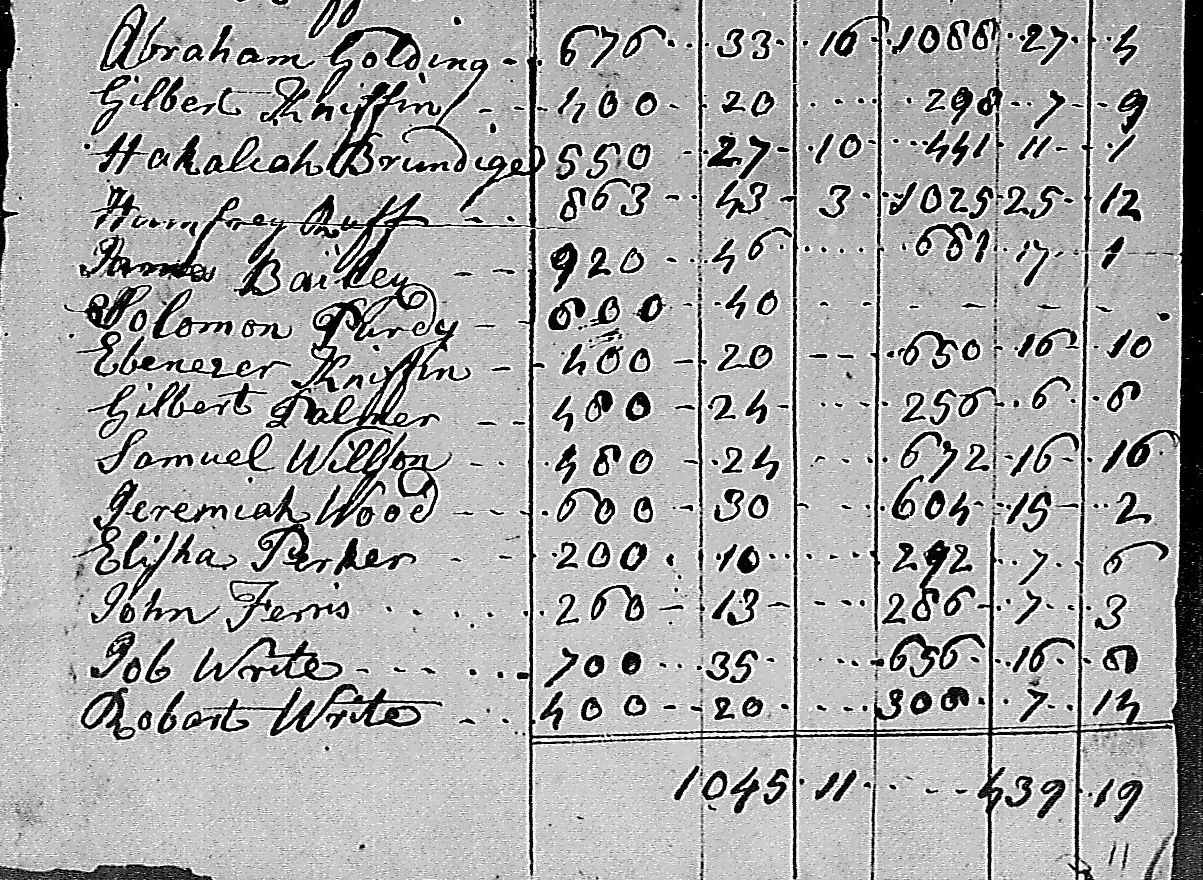 Abraham Golding - - 676 - - 33 - 16 - 1088 - 27 - 4
Gilbert Kniffin - - 400 - 20 - - - - 298 - 7 - 9
Hakaliah Brundige 550 - 27 - 10 - - 441 - 11 - 1
Humfrey Ruff - - - 863 - 43 - 3 - - 1025 - 25 - 12
James Bailey - - 920 - 46 - - - - 681 - 17 - 1
Solomon Purdy - - 800 - 40 - - - - -
Ebenezer Kniffin - - 400 - 20 - - - 650 - 16 - 10
Gilbert Palmer - - 480 - 24 - - - 256 - 6 - 8
Samuel Willson - - 480 - 24 - - - 672 - 16 - 16
Jeremiah Wood - - - 600 - 30 - - - 604 - 15 - 2
Elisha Perker - - 200 - 10 - - - 292 - 7 - 6
John Ferris - - - - 260 - 13 - - - 286 - 7 - 3
Job Write - - - - 700 - - 35 - - - 656 - 16 - 8
Robart Write - - 400 - - 20 - - - 300 - 7 - 14
1045 - 11 - - - 439 - 19
11